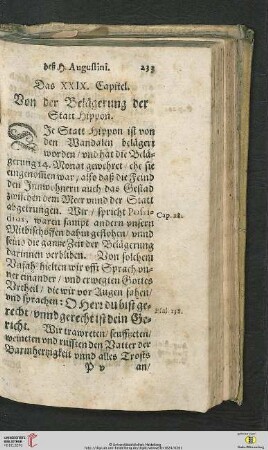 deß H. Augustini. 233
Das XXIX. Capitel.
Von der Belägerung der
Statt Hippon.
DIe Statt Hippon ist von
den Wandalen belägert
worden / vnd hat die Belä-
gerung 14. Monat gewehret / ehe sie
eingenom̃en war / also daß die Feind
den Innwohnern auch das Gestad
zwischen dem Meer vnnd der Statt
abgetrungen. Wir / spricht Possi-
dius, waren sampt andern vnsern
Cap. 28.
Mitbischoffen dahin geflohen / vnnd
seind die gantze Zeit der Belägerung
darinnen verbliben. Von solchem
hielten wir offt Sprach vn-
ter einander / vnd erwegten Gottes
Vrtheil / die wir vor Augen sahen /
vnd sprachen: O Herr du bist ge-
recht / vnnd gerecht ist dein Ge-
richt. Wir trawreten / seufftzeten /
Psal. 118.
weineten vnd rufften den Vatter der
Barmhertzigkeit vnnd alles Trosts
P v an /